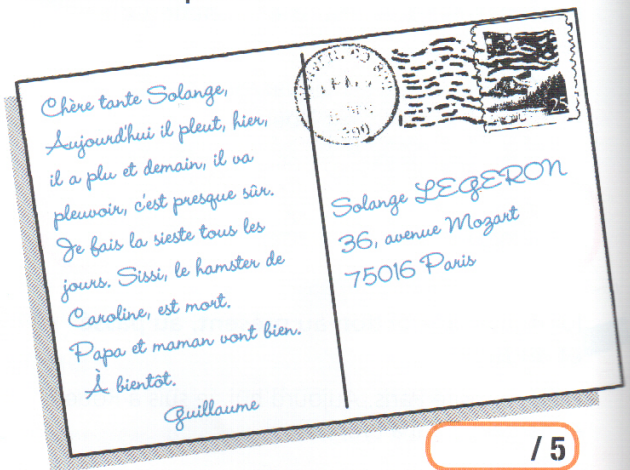 Chère tante Solange,
Aujourd'hui il pleut, hier,
il a plu et demain, il va
pleuvoir, c'est presque sûr.
Je fais la sieste tous les
jours. Sissi, le hamster de
Caroline, est mort.
Papa et maman vont bien.
À bientôt.
Guillaume
25
Solange LEGERON
36, avenue Mozart
75016 Paris
/ 5